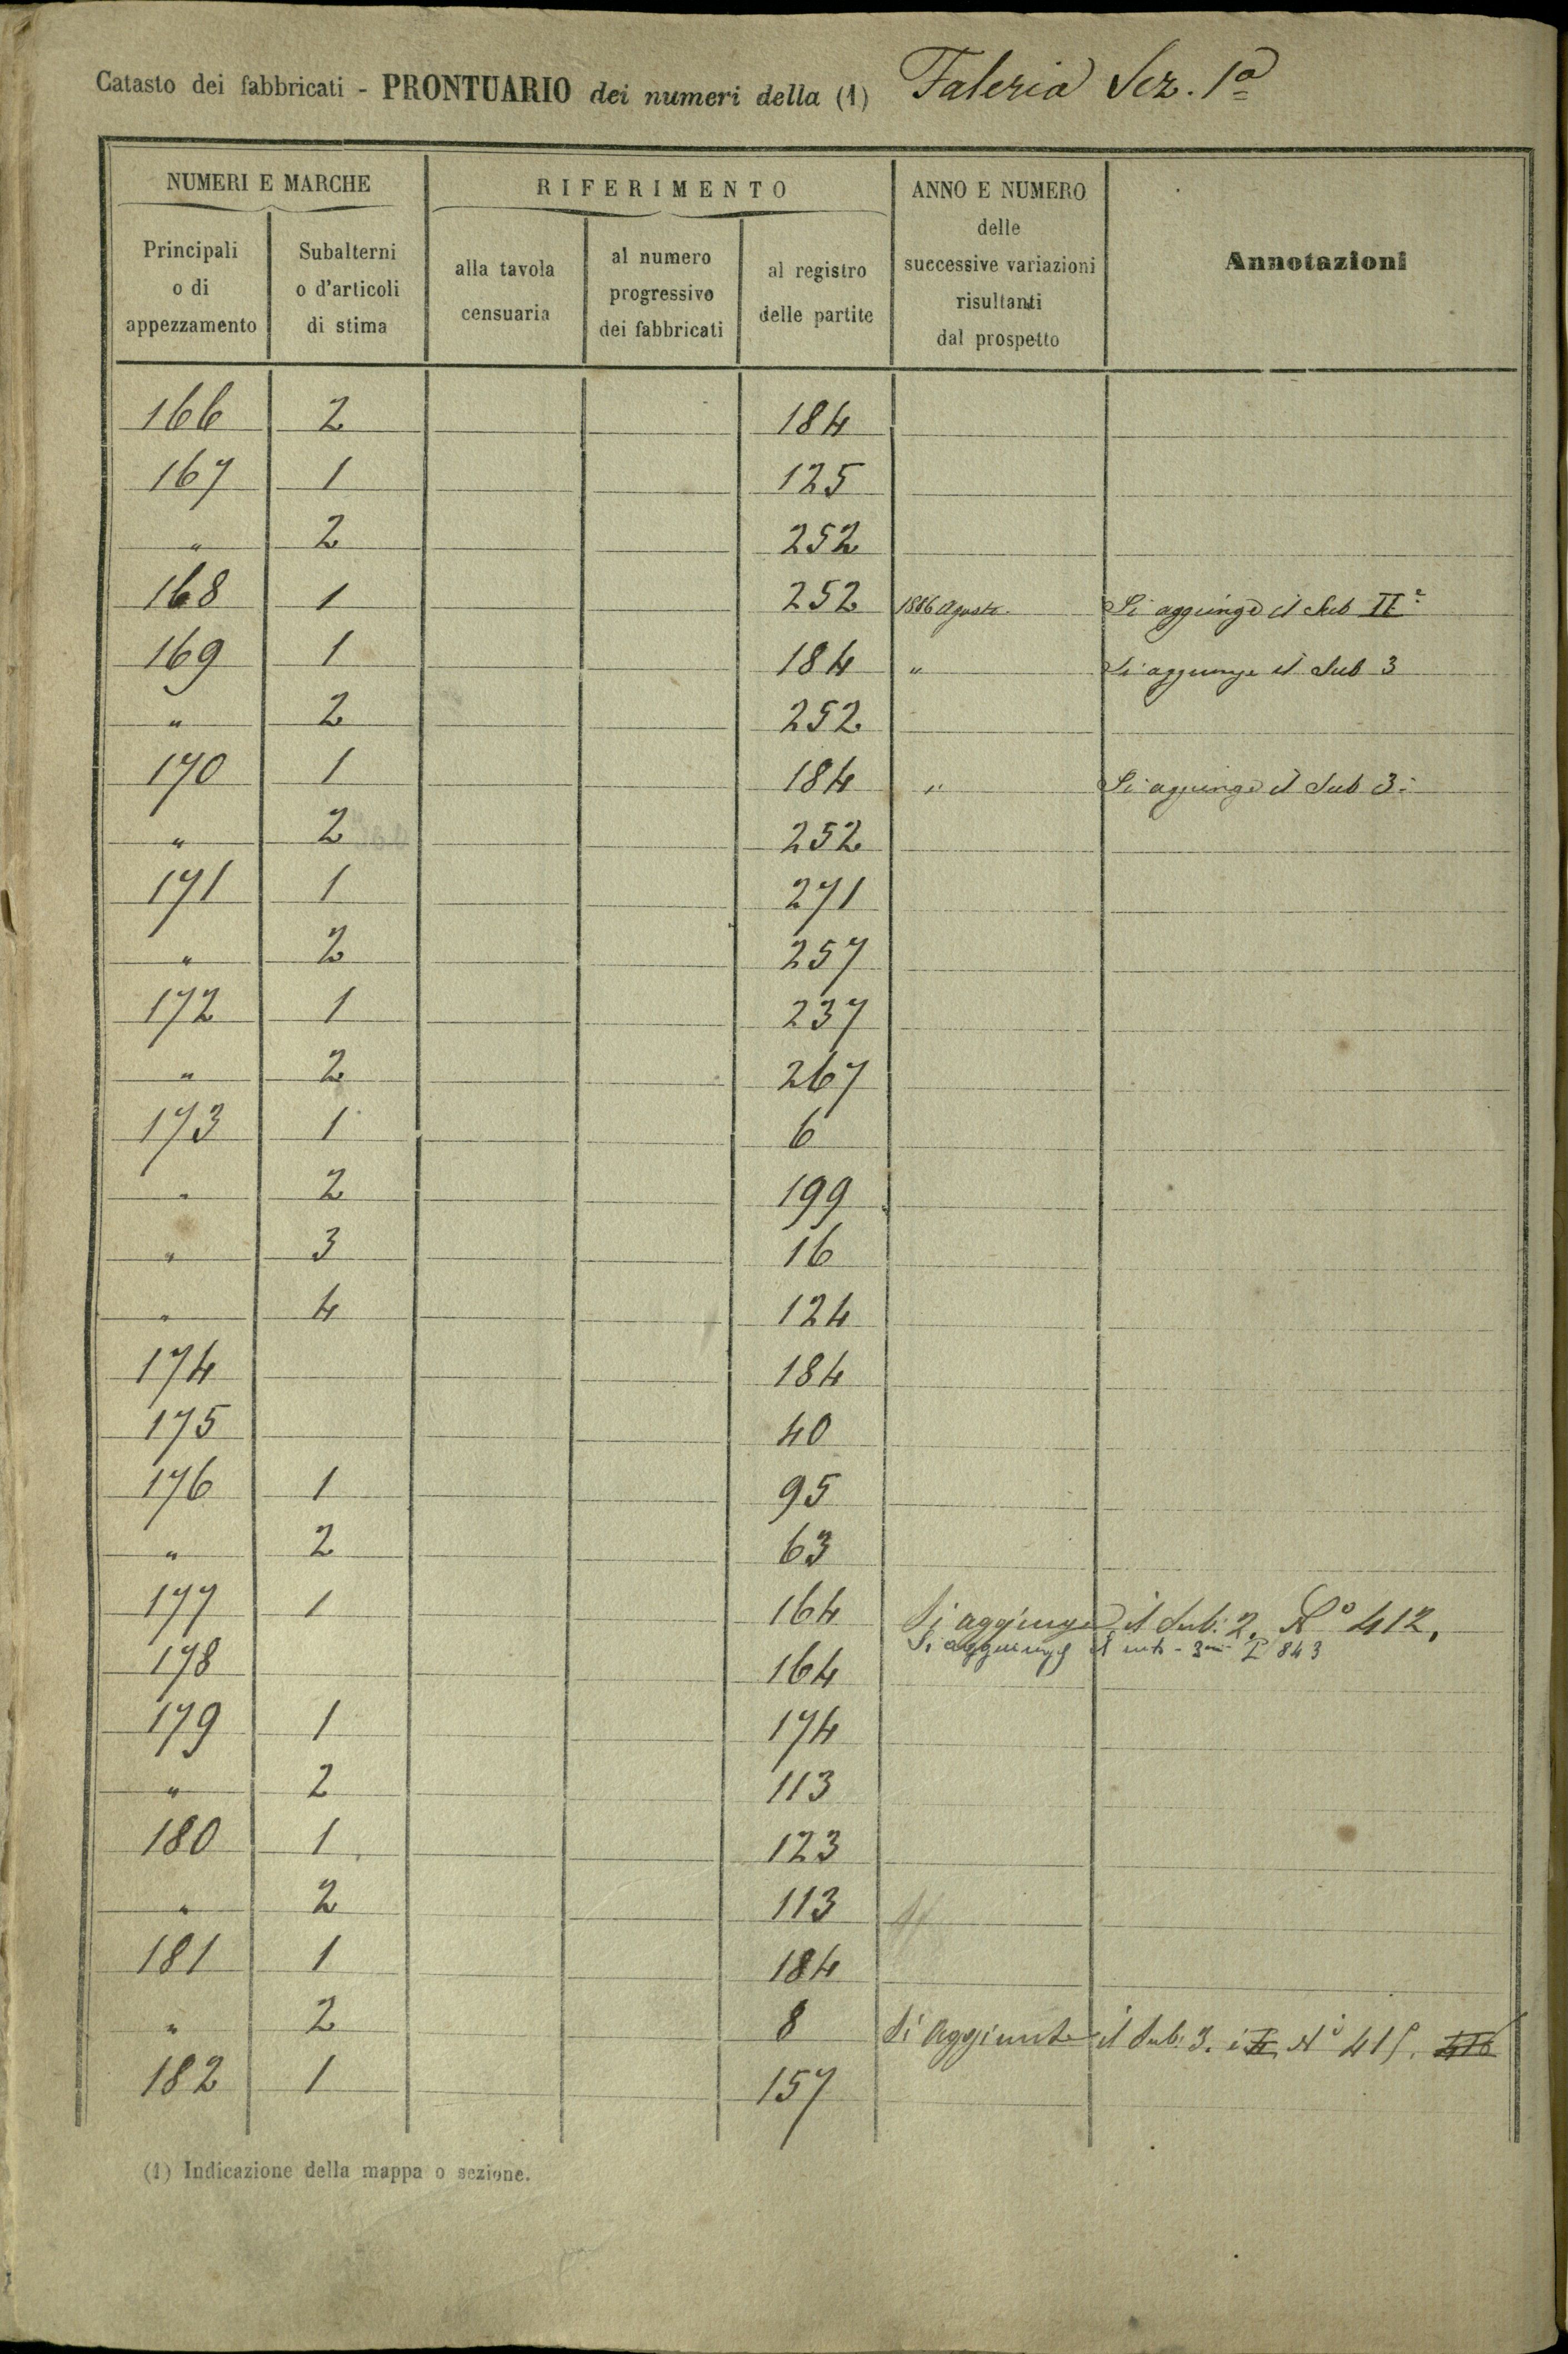 Catasto dei fabbricati - PRONTUARIO dei numeri della (1) Faleria Sez. 1ª
NUMERI E MARCHE
RIFERIMENTO
ANNO E NUMERO
delle
successive variazioni
risultanti
dal prospetto
Annotazioni
Principali
o di
appezzamento
Subalterni
o d'articoli
di stima
alla tavola
censuaria
al numero
progressivo
dei fabbricati
al registro
delle partite
166 2 184
167 1 125
" 2 252
168 1 252 1886 Agosto Si aggiunge il Sub II°
169 1 184 " Si aggiunge il Sub 3
" 2 252
170 1 184 " Si aggiunge il Sub 3°
" 2 252
171 1 271
" 2 257
172 1 237
" 2 267
173 1 6
" 2 199
" 3 16
" 4 124
174 184
175 40
176 1 95
" 2 63
177 1 164 Si aggiunge il Sub: 2. N° 412.
Si aggiunge il sub - 3 P 843
178 164
179 1 174
" 2 113
180 1 123
" 2 113
181 1 184
" 2 8 Si Aggiunte il Sub: 3. N° 415. 416
182 1 157
(1) Indicazione della mappa o sezione.